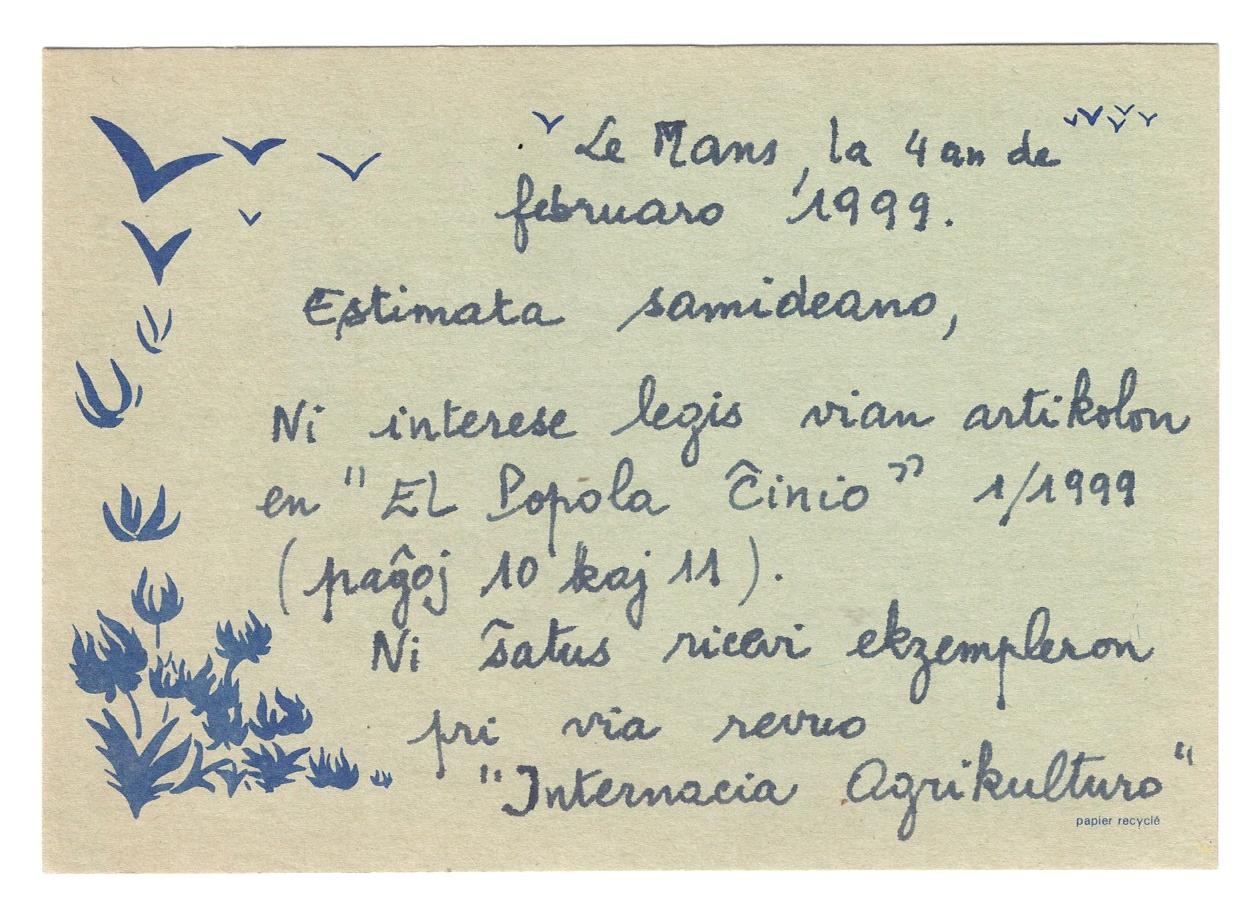 Le Mans, la 4an de
februaro 1999.
Estimata samideano,
Ni interese legis vian artikolon
en "EL Popola Ĉinio" 1/1999
(paĝoj 10 kaj 11).
Ni ŝatus ricevi ekzempleron
pri via revuo
"Internacia Agrikulturo"
papier recyclé